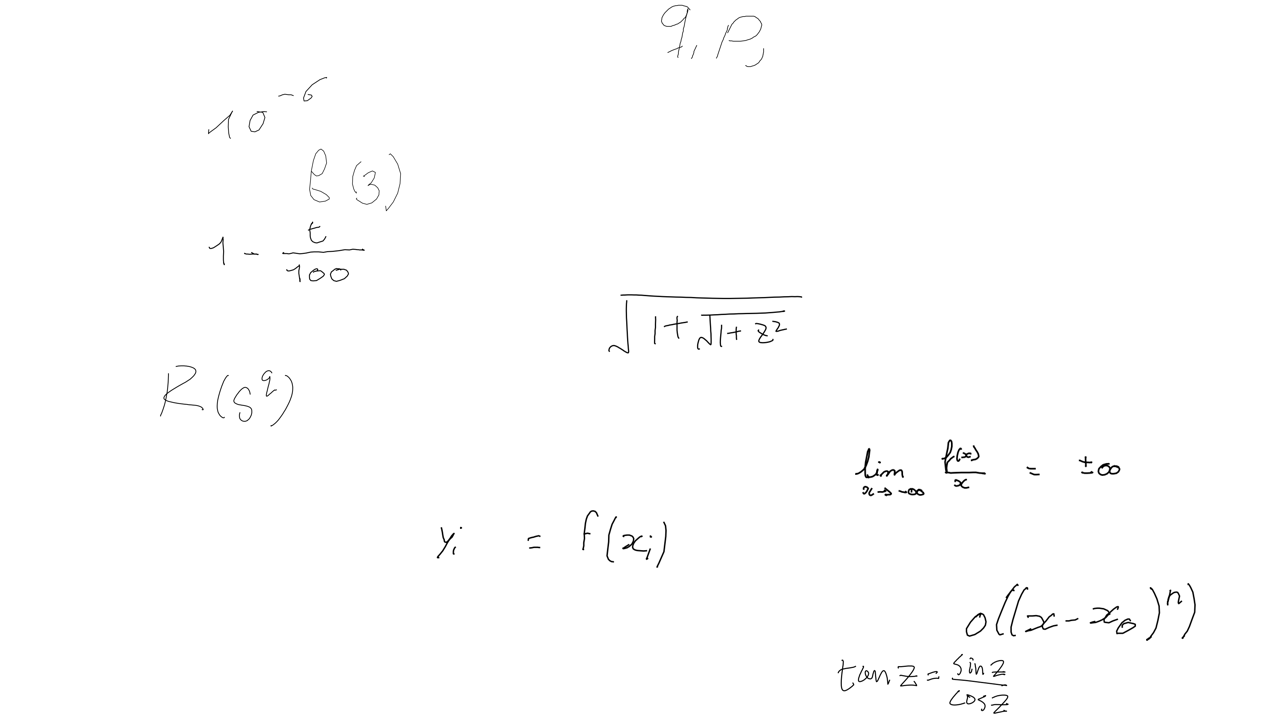 q, p,
10^{-6}
β(3)
1 - \frac{t}{100}
\sqrt{1 + \sqrt{1 + z^2}}
R(S^q)
\lim_{x \to -\infty} \frac{f(x)}{x} = \pm\infty
y_i = f(x_i)
o((x - x_0)^n)
\tan z = \frac{\sin z}{\cos z}